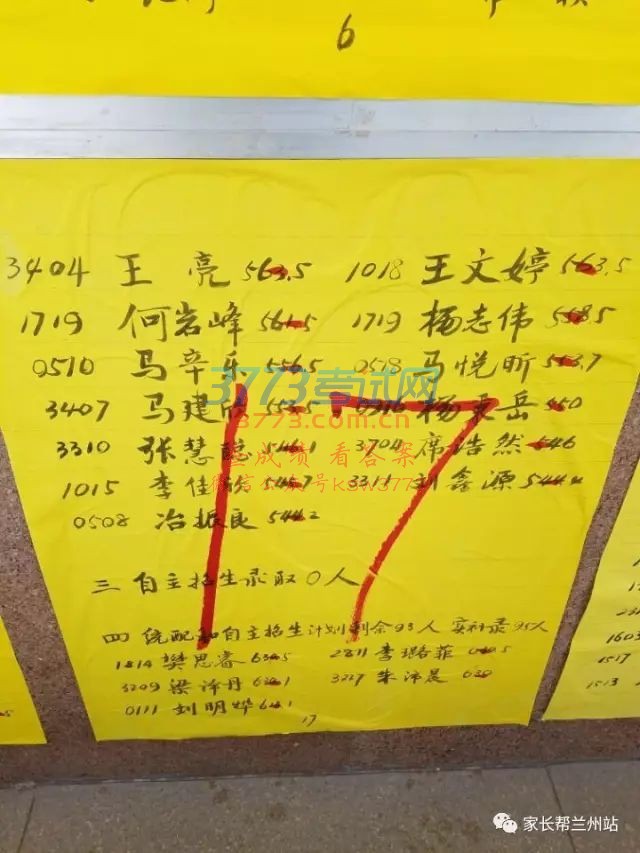 6
3404 王亮 563.5 1018 王文婷 563.5
1719 何岩峰 561.5 1719 杨志伟 558.5
0510 马辛乐 556.5 0518 马悦昕 553.7
3773考试网
3407 马建 553.5 0316 杨 岳 550
3773.com.cn
3310 张慧 546.1 3704 席浩然 546
查成绩 看答案
1015 李佳 545.7 3311 刘鑫源 544.4
微信公众号KSW3773
0508 冶振良 544.2
17
三 自主招生录取0人
四 统配和自主招生计划剩余93人 实补录95人
1814 樊思睿 2811 李璐菲
3209 梁泽丹 3227 朱沛晨 630
0111 刘明烨
17
1603
1517
1513
家长帮兰州站